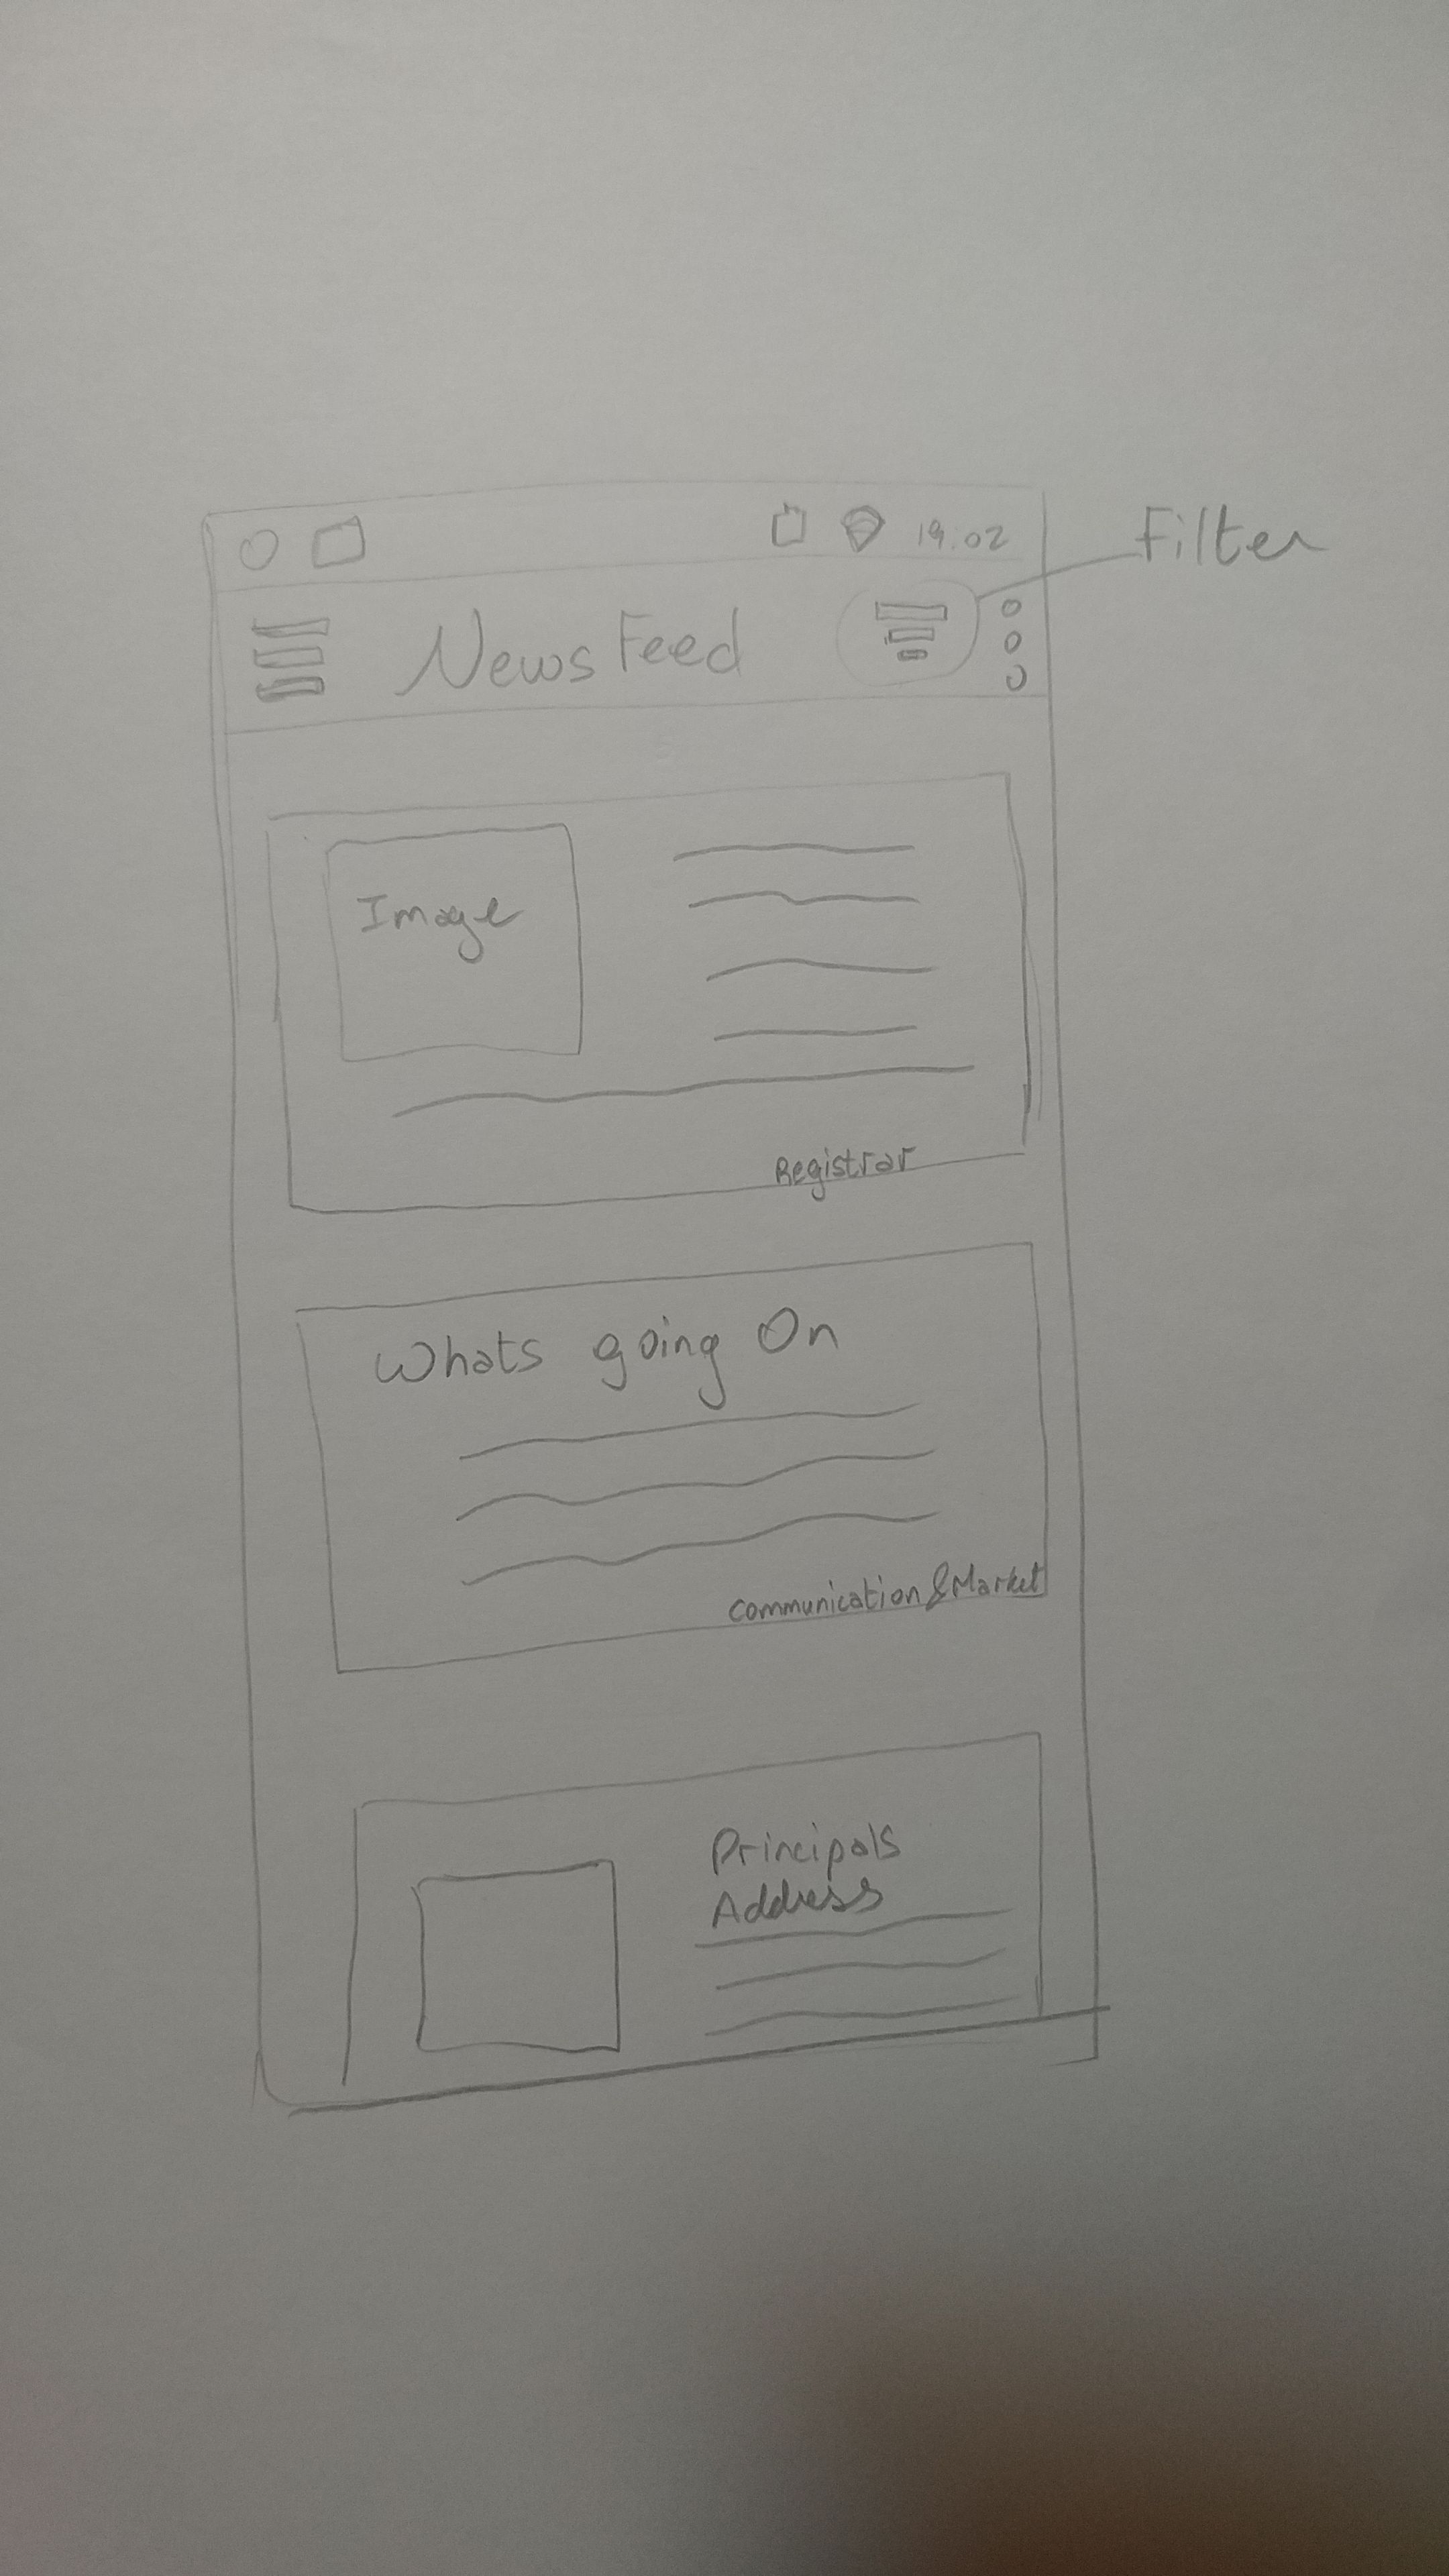 19:02
Filter
News Feed
Image
Registrar
Whats going On
Communication & Market
Principals
Address